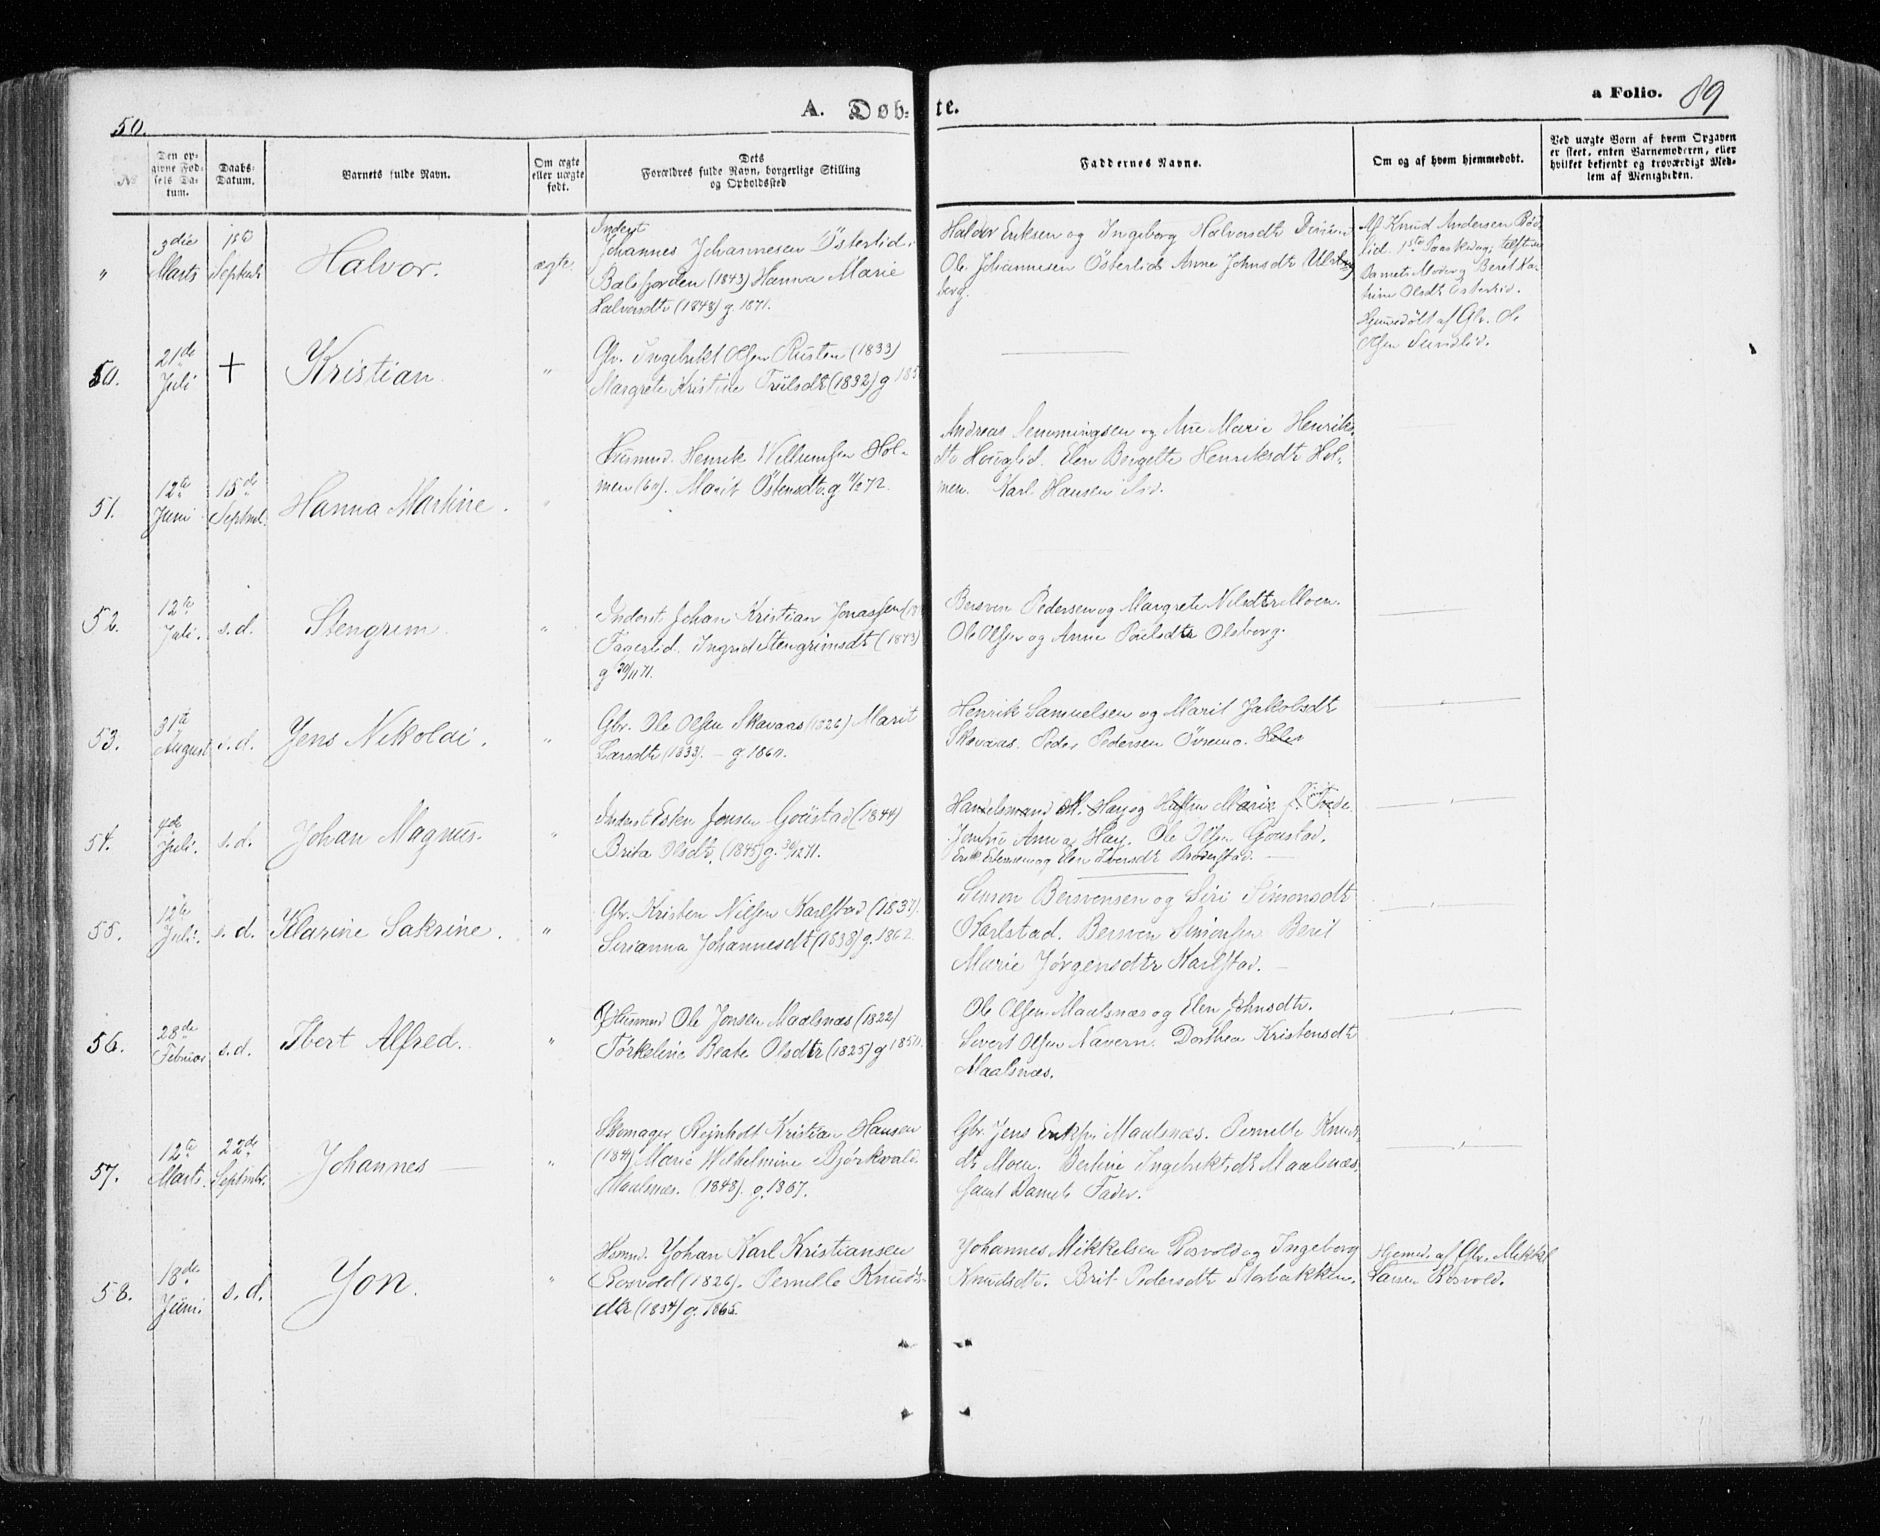 A. Døb-te.
a Folio. 89
50.
No
Den opgivne Fødsels Datum.
Daabs-Datum.
Barnets fulde Navn.
Om ægte eller uægte født.
Dets Forældres fulde Navn, borgerlige Stilling og Opholdssted
Faddernes Navne.
Om og af hvem hjemmedøbt.
Ved uægte Børn af hvem Opgaven er skeet, enten Barnemoderen, eller hvilket bekjendt og troværdigt Medlem af Menigheden.
" 3die Marts 1ste Septembr Halvor. ægte.
Inderst
Johannes Johannesen Østerlid.
Balsfjorden (1843) Hanna Marie
Halvorsdtr (1848) g. 1871.
Haldor Eriksen og Ingeborg Halvorsdtr
Ole Johannesen Østerlid Anne Johnsdtr
berg.
Af Knud Andersen
lid. 1ste Paaskedag;
Barnets Moder og Beret Ka-
trine Olsdtr Østerlid.
Hjemmedøbt af Gbr. Ole
Olsen
50. 21de Juli + Kristian. "
Gbr. Ingebrikt Olsen Rusten (1833)
Margrete Kristine Trulsdtr (1832) g 185
51. 12te Juni 15de Septmbr. Hanna Martine. "
Husmnd. Henrik Willumsen Hol-
men (60). Marit Østensdtr. g 72.
Andreas Simmingsen og Ane Marie Henriks-
dtr Houglid. Elen Bergette Henriksdtr Hol-
men. Karl Hansen
52. 12te Juli. s.d. Stengrim "
Inderst Johan Kristian Jonassen
Fagerlid. Ingrid Stengrimsdtr (1843)
g 30/11 71.
Bersven Pedersen og Margrete Nilsdtr Moen.
Ole Olsen og Anne Poulsdtr Olsborg.
53. 31te August s.d. Jens Nikolai. "
Gbr. Ole Olsen Skavaas (1826) Marit
Larsdtr (1833). – g 1860.
Henrik Samuelsen og Marit Jakobsdtr
Skavaas. Peder Pedersen Øvremo.
54. 4de Juli. s.d. Johan Magnus. "
Inderst Esten Jonsen Goustad (1844)
Brita Olsdtr. (1845) g. 71.
Handelsmand M. Hay og Hustru Marie f.
Jomfru Anne Hay. Ole Olsen Goustad.
Erik Estensen og Elen Iversdtr Broderstad.
55. 12te Juli. s.d. Klarine Sakrine. "
Gbr. Kristen Nilsen Karlstad (1837).
Serianna Johannesdtr (1838) g. 1862.
Simon Bersvensen og Siri Simonsdtr
Karlstad. Bersven Simonsen. Berit
Marie Jørgensdtr Karlstad. –
56. 28de Februar s.d. Ibert Alfred. "
Husmnd Ole Jonsen Maalsnæs (1822)
Tørkeline Beate Olsdtr (1825) g 1850.
Ole Olsen Maalsnæs og Elen Johnsdtr.
Sivert Olsen Navern. Dorthea Kristensdtr
Maalsnæs.
57. 12te Marts. 22de Septmbr. Johannes "
Skomager Rejnholt Kristian Hansen
(184) Marie Wilhelmine Bjørkvald
Maalsnæs. (1848). g. 1867.
Gbr. Jens Eriksen Maalsnæs. Pernille Knuds-
dtr Moen. Bertine Ingebriktsdtr Maalsnæs.
samt Barnets Fader.
58. 18de Juni. s.d. Jon. "
Husmnd. Johan Karl Kristiansen
Rosvold (1826). Pernille Knuds-
dtr (1834) g. 1865.
Johannes Mikkelsen Rosvold og Ingeborg
Knudsdtr. Brit Pedersdtr Storbakken.
Hjemd. af Gbr. Mikkel
Larsen Rosvold.